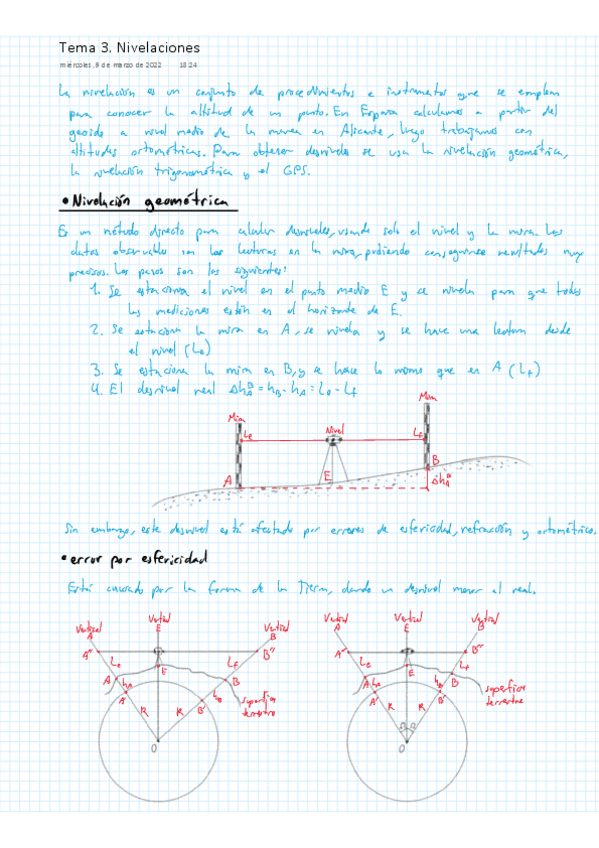 Tema 3. Nivelaciones
miércoles, 9 de marzo de 2022 18:24
La nivelación es un conjunto de procedimientos e instrumentos que se emplean
para conocer la altitud de un punto. En España calculamos a partir del
geoide a nivel medio de la marea en Alicante, luego trabajamos con
altitudes ortométricas. Para obtener desniveles se usa la nivelación geométrica,
la nivelación trigonométrica y el GPS.
• Nivelación geométrica
Es un método directo para calcular desniveles, usando solo el nivel y la mira. Los
datos observables son las lecturas en la mira, pudiendo conseguirse resultados muy
precisos. Los pasos son los siguientes:
1. Se estaciona el nivel en el punto medio E y se nivela para que todas
las mediciones estén en el horizonte de E.
2. Se estaciona la mira en A, se nivela y se hace una lectura desde
el nivel (Le)
3. Se estaciona la mira en B, y se hace lo mismo que en A (Lf)
4. El desnivel real ΔhAB = hB - hA = Le - Lf
Mira
Mira
Le
Nivel
Lf
A
E
B
ΔhAB
Sin embargo, este desnivel está afectado por errores de esfericidad, refracción y ortométrico.
• error por esfericidad
Está causado por la forma de la Tierra, dando un desnivel menor al real.
Vertical A
Vertical E
Vertical B
A''
B''
Le
Lf
A
E
B
hA
hB
A'
B'
R
R
O
superficie
terrestre
Vertical A
Vertical E
Vertical B
A''
B''
Le
Lf
A
E
B
hA
hB
A'
B'
R
R
O
superficie
terrestre